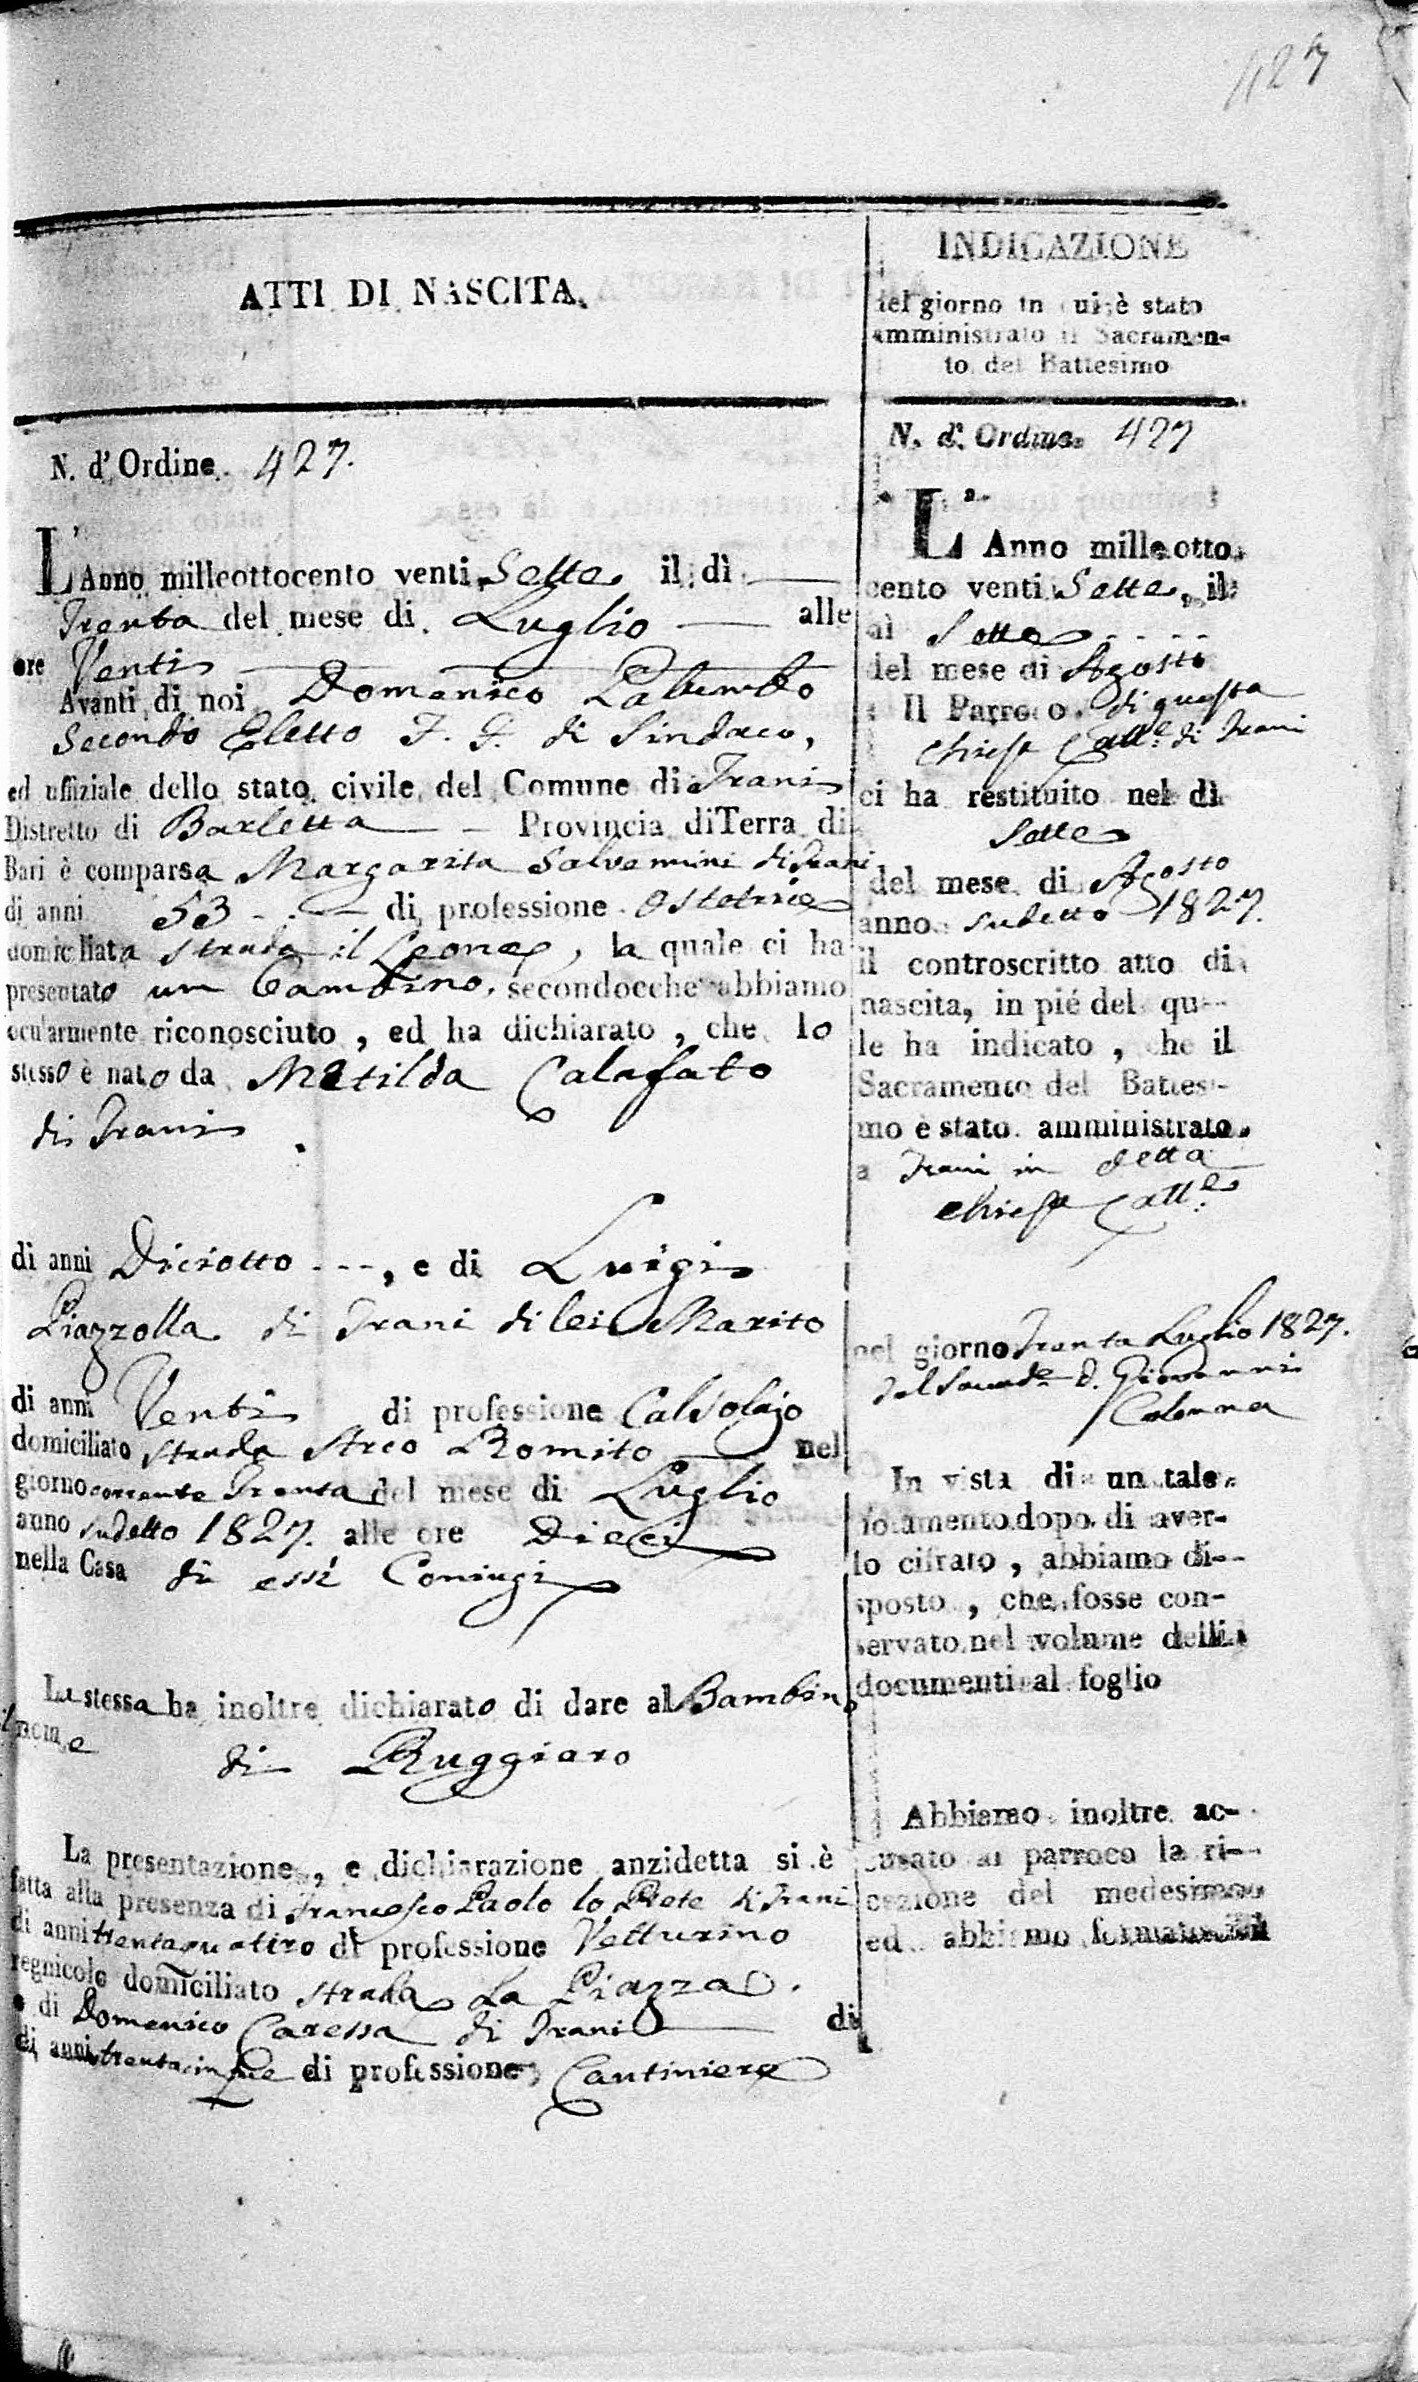 427
ATTI DI NASCITA.
N. d'Ordine 427.
L'Anno milleottocento venti Sette il dì
Trenta del mese di Luglio alle
ore Venti
Avanti di noi Domenico Palumbo
Secondo Eletto F. F. di Sindaco,
ed uffiziale dello stato civile del Comune di Trani
Distretto di Barletta Provincia di Terra di
Bari è comparsa Margarita Salvemini di Trani
di anni 53 di professione Ostetrice
domiciliata strada il Leone, la quale ci ha
presentato un Bambino, secondocche abbiamo
ocularmente riconosciuto, ed ha dichiarato, che lo
stesso è nato da Matilda Calafato
di Trani
di anni Diciotto ---, e di Luigi
Piazzolla di Trani di lei Marito
di anni Venti di professione Calsolajo
domiciliato strada Arco Romito nel
giorno corrente Trenta del mese di Luglio
anno sudetto 1827. alle ore Dieci
nella Casa di essi Coniugi
La stessa ha inoltre dichiarato di dare al Bambino
il nome
di Ruggiero
La presentazione, e dichiarazione anzidetta si è
fatta alla presenza di Francesco Paolo lo Prete di Trani
di anni trentaquattro di professione Vetturino
regnicolo domiciliato strada La Piazza.
e di Domenico Caressa di Trani di
di anni trentacinque di professione Cantiniere
INDICAZIONE
del giorno in cui è stato
amministrato il Sacramen-
to del Battesimo
N. d'Ordine 427
L'Anno milleotto
cento venti Sette, il
dì Sette
del mese di Agosto
Il Parroco di questa
chiesa Catt.e di Trani
ci ha restituito nel dì
Sette
del mese di Agosto
anno sudetto 1827.
il controscritto atto di
nascita, in pié del qu-
le ha indicato, che il
Sacramento del Battes-
mo è stato amministrato
a Trani in detta
chiesa Catt.e
nel giorno Trenta Luglio 1827.
dal D. Giovanni
Colonna
In vista di un tale
notamento dopo di aver-
lo cifrato, abbiamo di-
sposto, che fosse con-
servato nel volume delli
documenti al foglio
Abbiamo inoltre ac-
cusato al parroco la ri-
cezione del medesimo
ed abbiamo formato